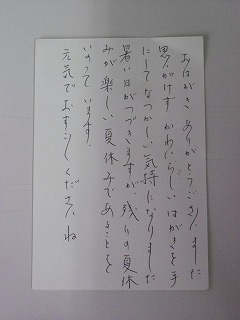 おはがき ありがとうございました
思いがけず かわいらしいはがきを手
にしてなつかしい気持になりました
暑い日がつづきますが、残りの夏休
みが楽しい夏休みであることを
いのって います。
元気でおすごしくださいね